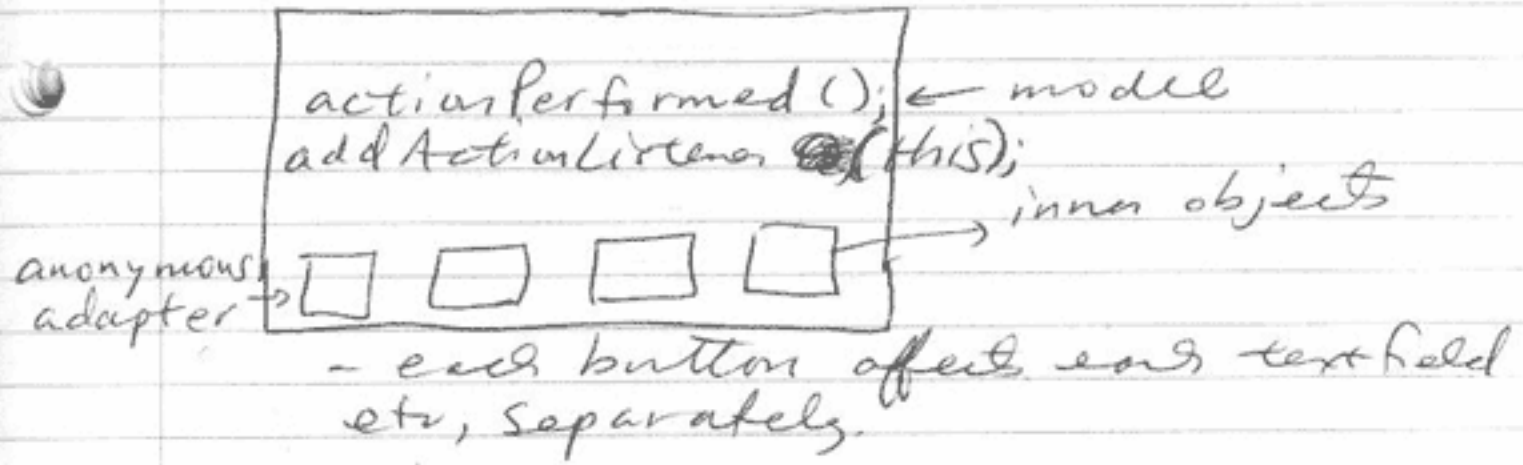 actionPerformed(); ← model
addActionListener (this);
→ inner objects
anonymous
adapter →
- each button affects each textfield
etc, separately.